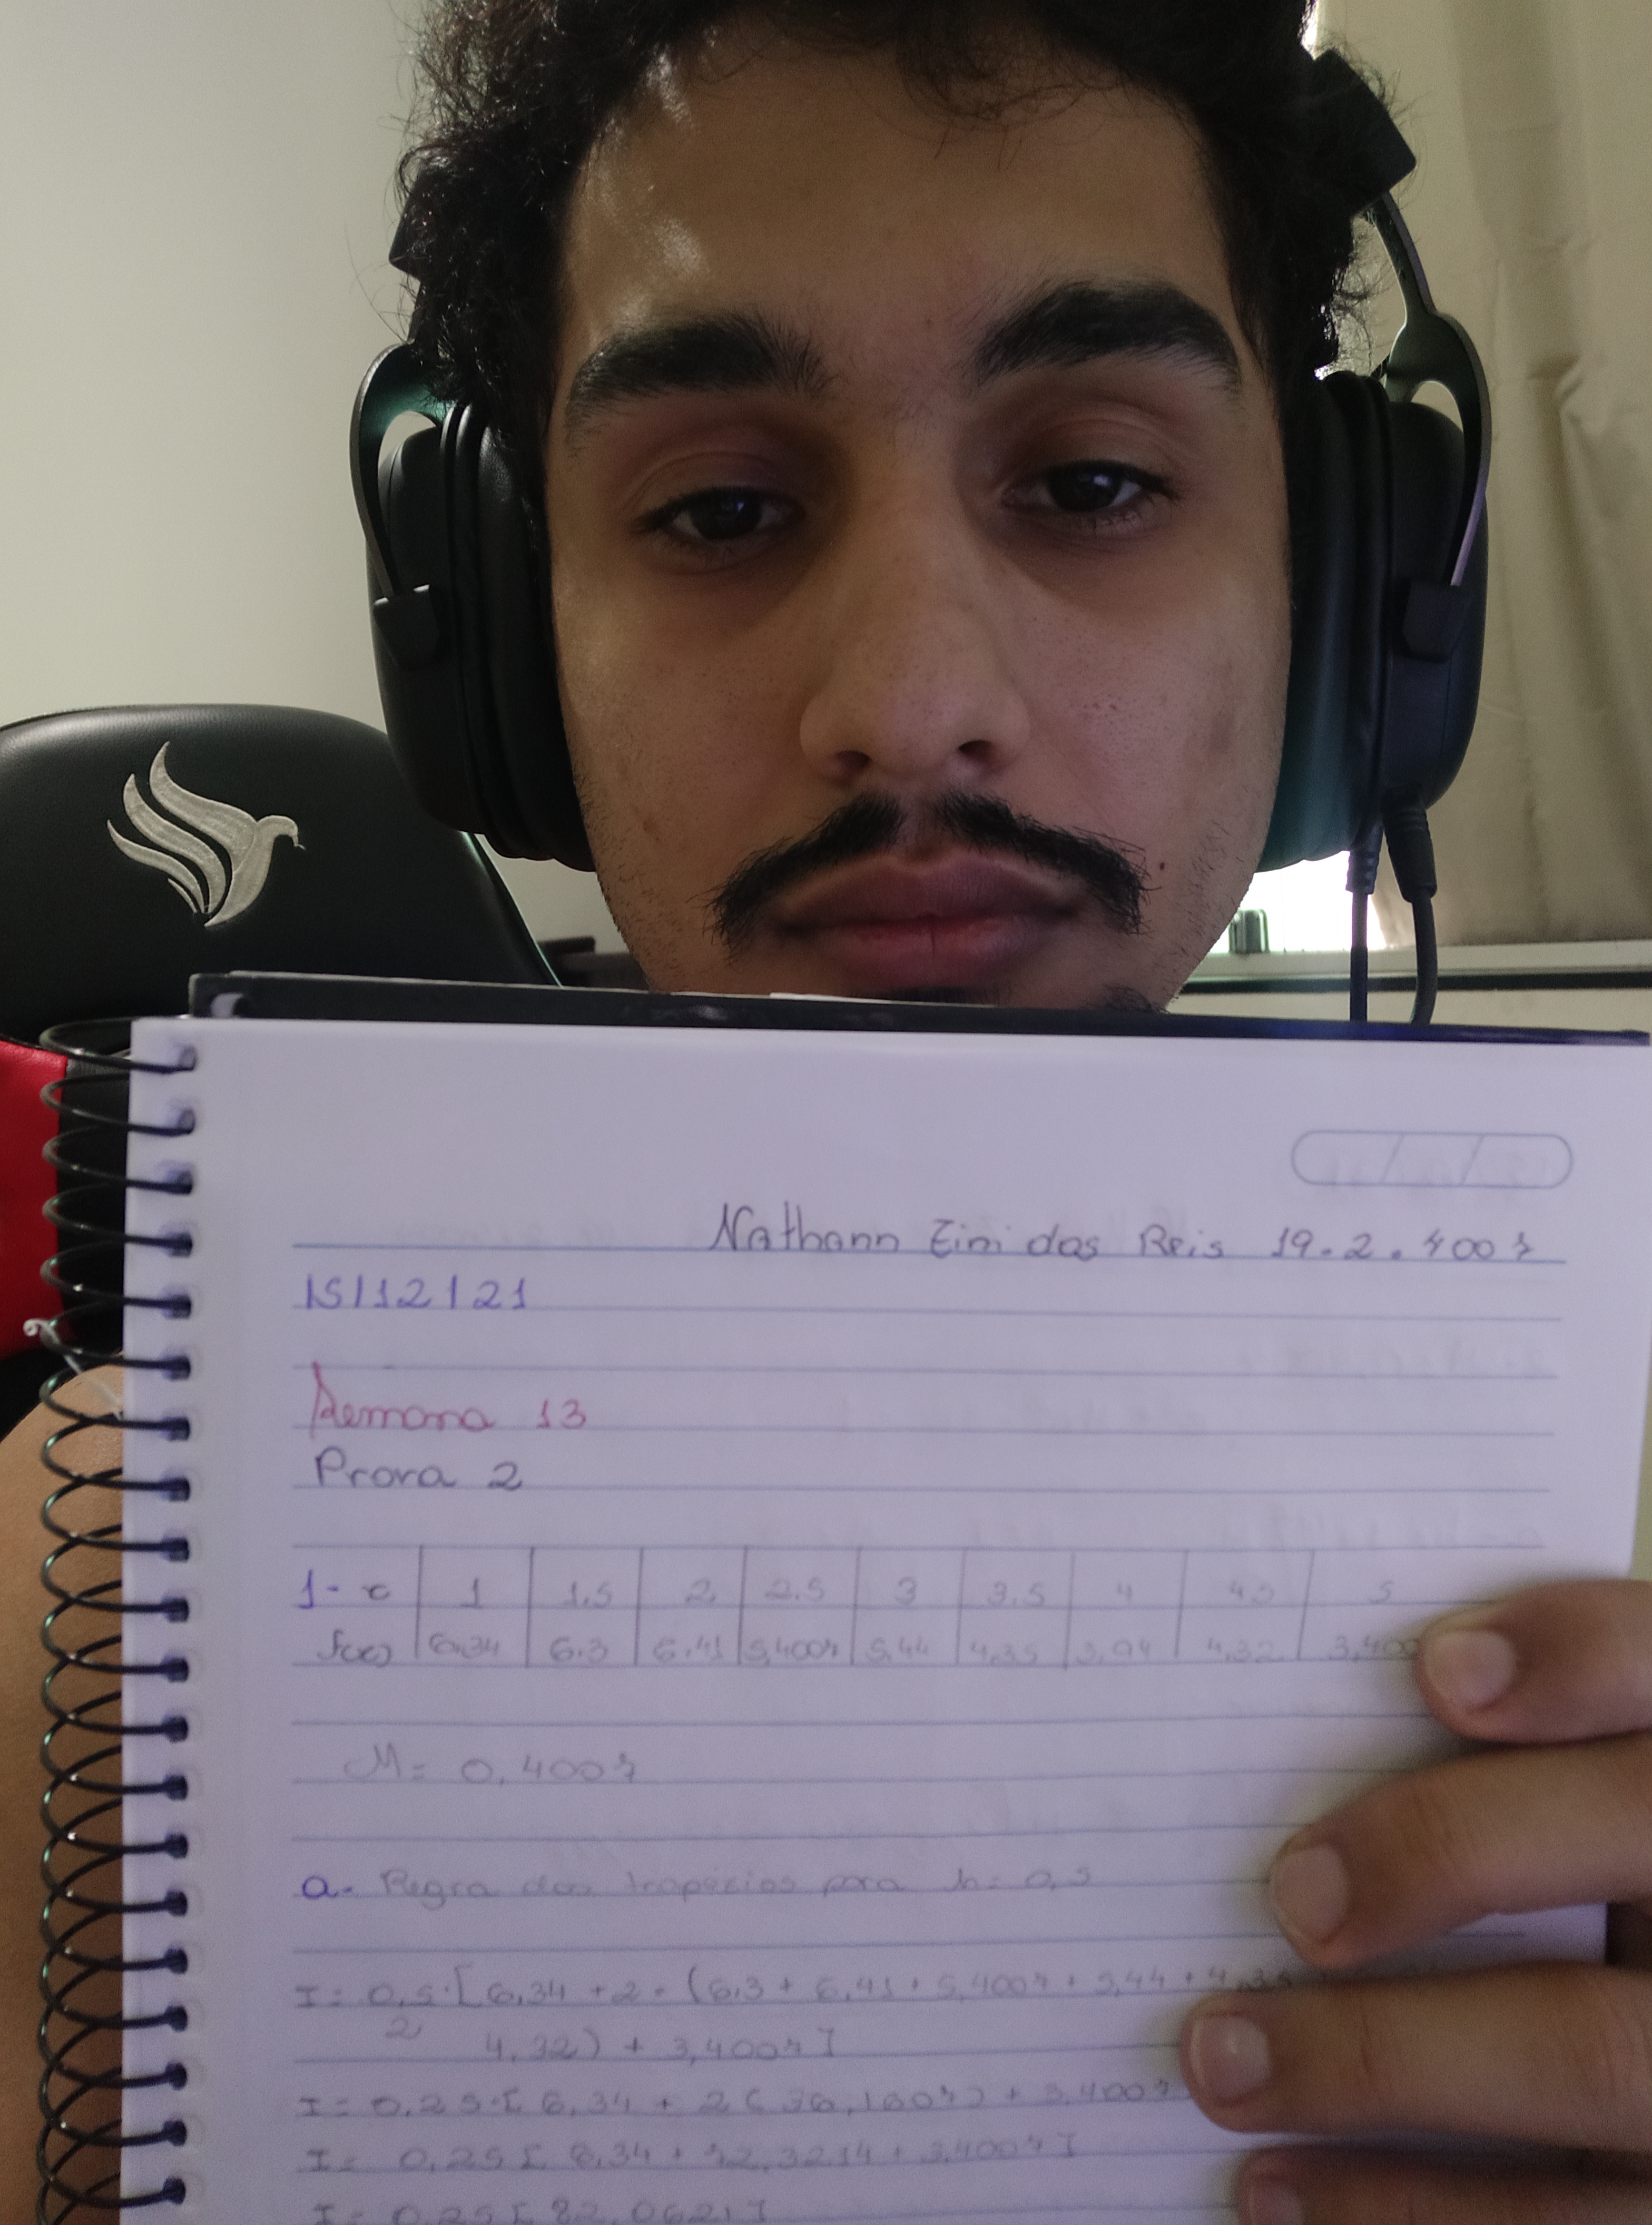 Nathann Zini dos Reis 19.2.4007
15/12/21
Semana 13
Prova 2
1- x 1 1.5 2 2.5 3 3.5 4 4.5 5
f(x) 6.34 6.3 6.41 5,4007 5,44 4,35 3,94 4,32 3,400
M = 0,4007
a- Regra dos trapézios para h = 0,5
I = 0,5/2 · [6,34 + 2 · (6,3 + 6,41 + 5,4007 + 5,44 + 4,35
4,32) + 3,4007]
I = 0,25 · [6,34 + 2 (36,1607) + 3,4007
I = 0,25 [6,34 + 72,3214 + 3,4007]
I = 0,25 [82,0621]